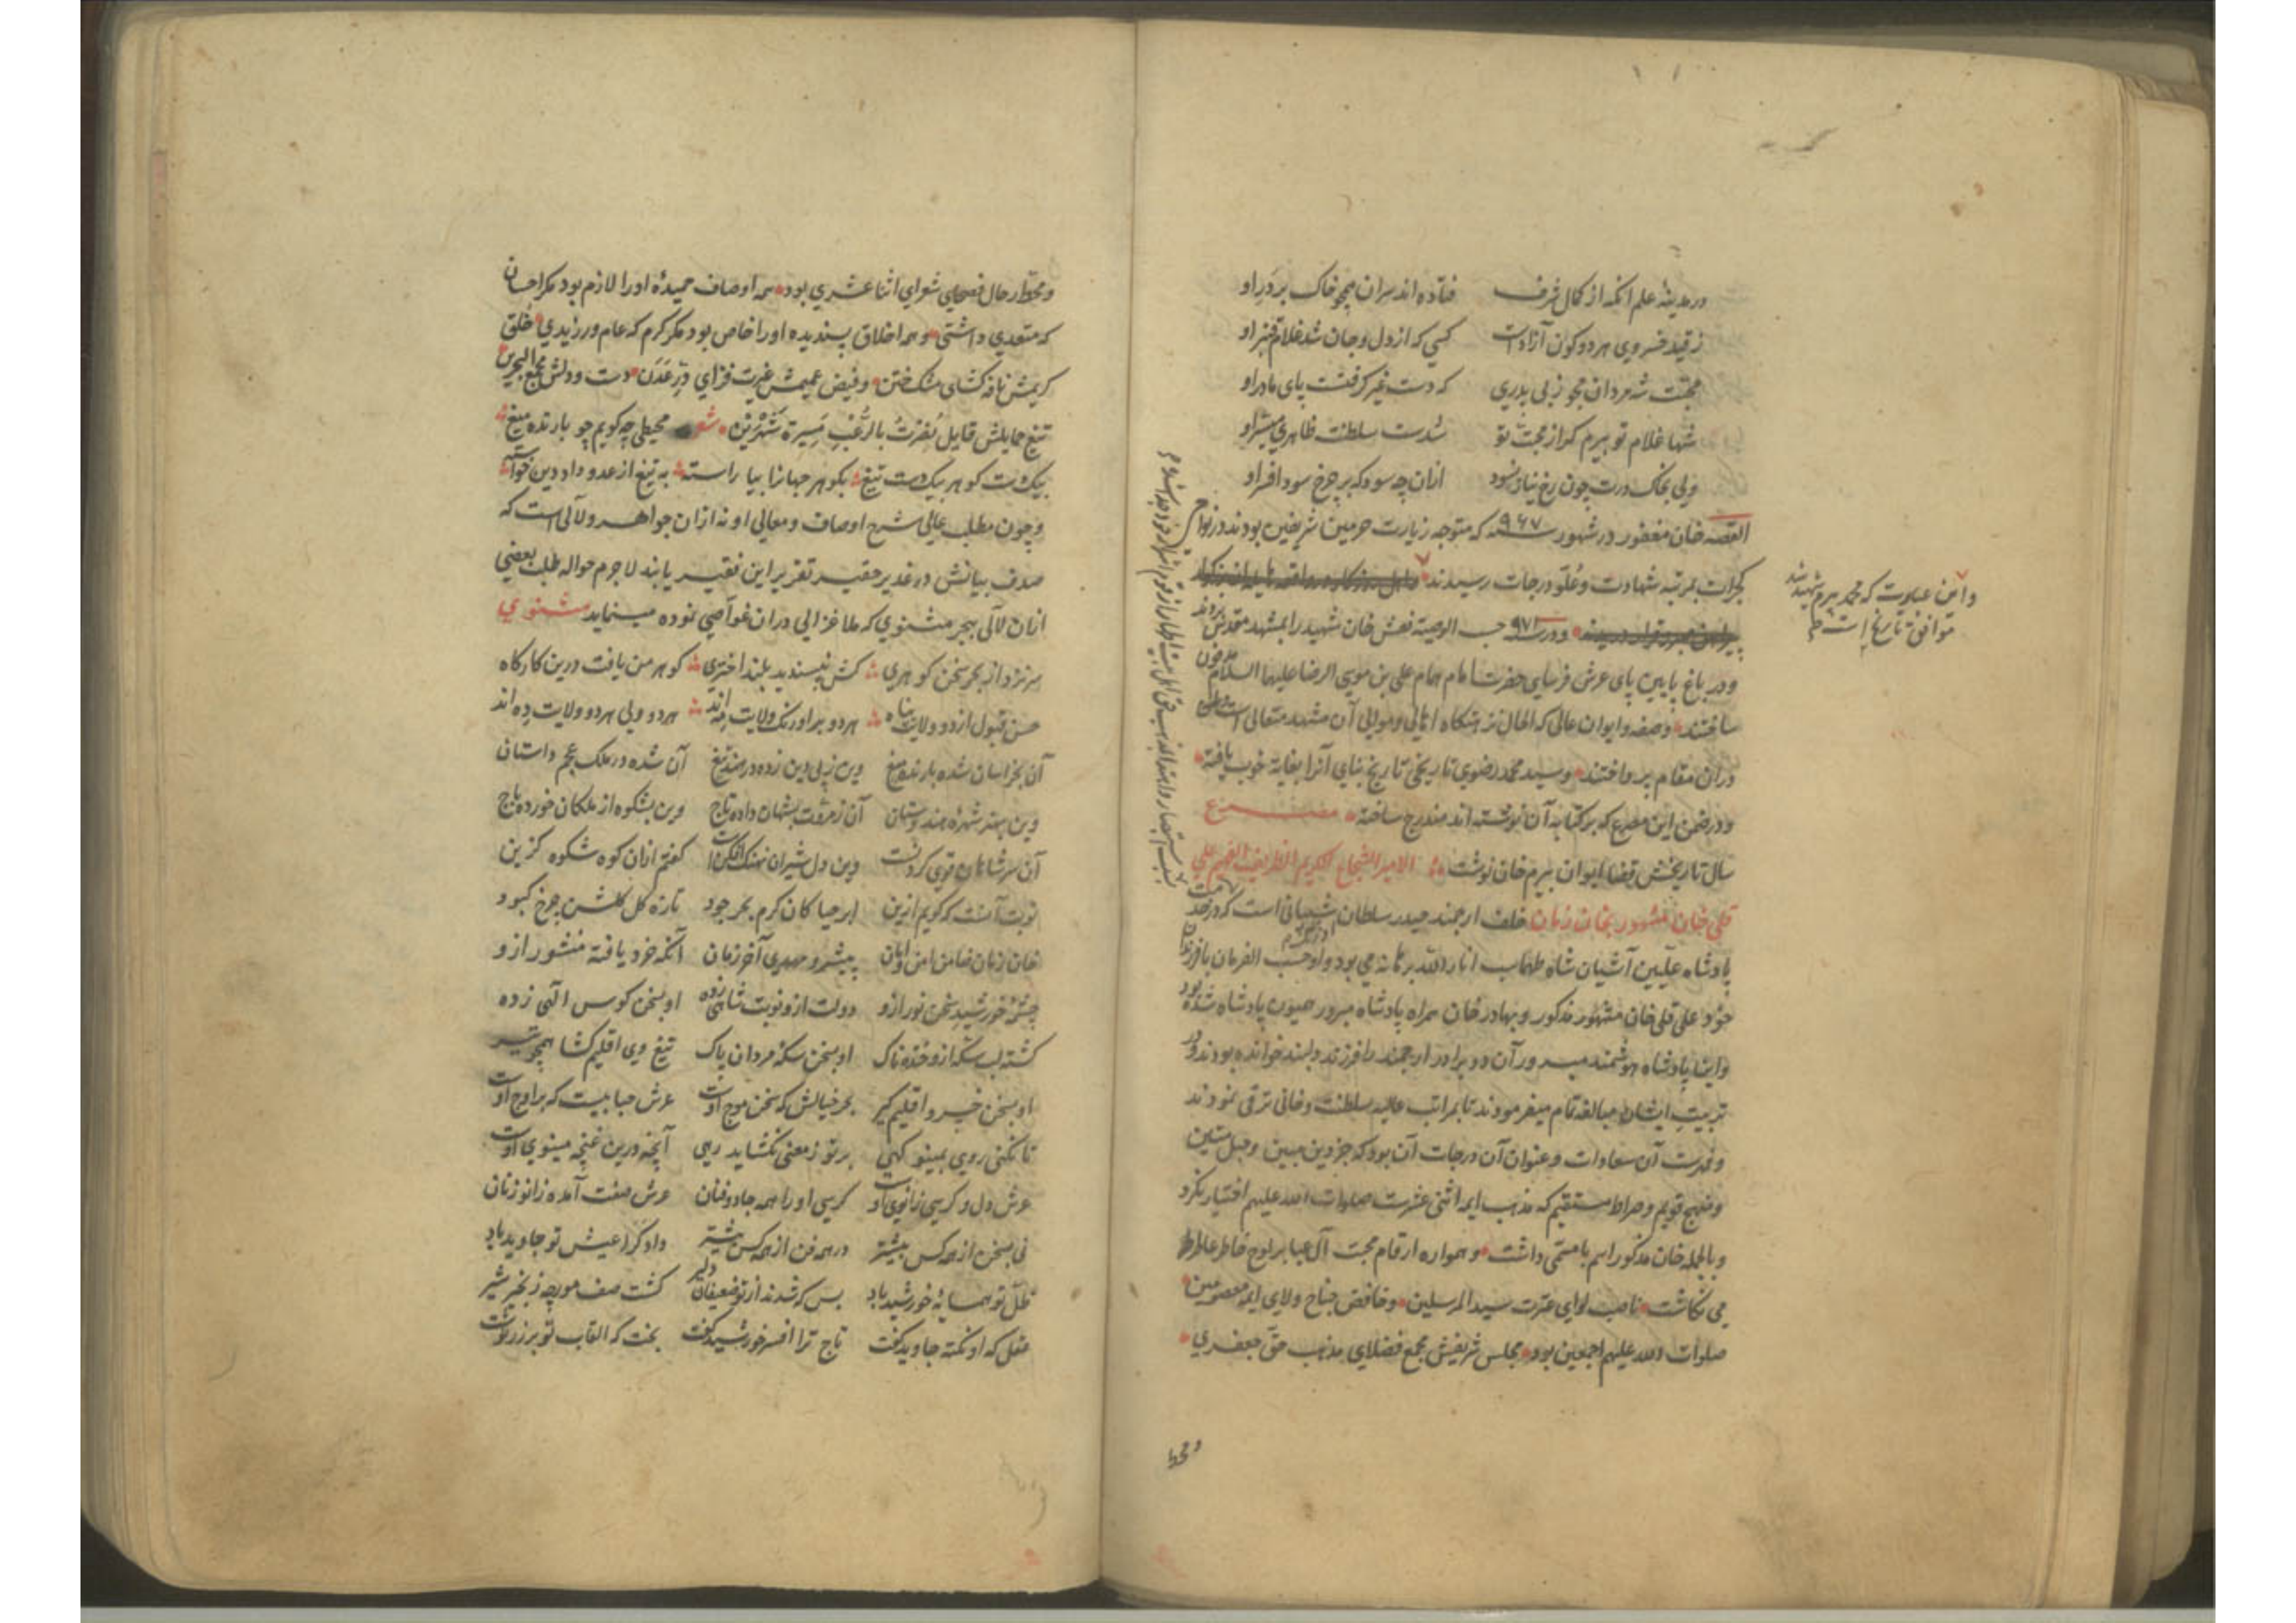 در مدینه علم انکه از کمال شرف فتاده اند سران همچو خاک بر در او
ز قید خسروی هر دو کون آزادست کسی که از دل و جان شد غلام قنبر او
محبت شه مردان مجو ز بی پدری که دست غیر گرفتست پای مادر او
شها غلام تو بیرم که از محبت تو شدست سلطنت ظاهری میسر او
ولی بخاک درت چون رخ نیاز نسود ازان چه سود که بر چرخ سود افسر او
القصه خان مغفور در شهور سنه ٩٦٧ که متوجه زیارت حرمین شریفین بودند در نواح
کجرات بمرتبه شهادت و علو درجات رسیدند
و در سنه ٩٧١ حسب الوصیة نعش خان شهید را بمشهد مقدس بردند
و در باغ پایین پای عرش فرسایی حضرت امام همام علی بن موسی الرضا علیهما السلام مدفون
ساختند و صفه و ایوان عالی که الحال اهالی و موالی آن مشهد متعالی است
دران مقام پرداختند و سید محمد رضوی تاریخی تاریخ بنای آنرا بغایة خوب یافته
و در ضمن این مصرع که بر کتابه آن نوشته اند مندرج ساخته مصرع
سال تاریخش قضا ایوان بیرم خان نوشت الامیر الشجاع الکریم الظریف الفهیم علی
قلی خان مشهور بخان زمان خلف ارجمند حیدر سلطان شیبانی است که در خدمت
پادشاه علیین آشیان شاه طهماسب انار الله برهانه می بود و او حسب الفرمان با فرزندان
خود علی قلی خان مشهور مذکور و بهادر خان همراه پادشاه مبرور همیون پادشاه شده بود
و آن پادشاه هوشمند مبرور آن دو برادر ارجمند را فرزند دلبند خوانده بودند و در
تربیت ایشان مبالغه تمام میفرمودند تا بمراتب عالیه سلطنت و خانی ترقی نمودند
و فهرست آن سعادات و عنوان آن درجات آن بود که جز دین مبین و حبل متین
و منهج قویم و صراط مستقیم که مذهب ایمه اثنی عشرست صلوات الله علیهم اختیار نکرد
و بالجمله خان مذکور اسم با مسمی داشت و همواره ارقام محبت آل عبا بر لوح خاطر عاطر
می نکاشت ناصب لوای عترت سید المرسلین و خافض جناح ولای ایمه معصومین
صلوات الله علیهم اجمعین بود مجلس شریفش مجمع فضلای مذهب حق جعفری
و محط
و این عبارت که محمد بیرم شهید شد
موافق تاریخ است
و محط رحال فصحای شعرای اثنا عشری بود همه اوصاف حمیده او را لازم بود مکر احسان
که متعدی داشتی و همه اخلاق پسندیده او را خاص بود مکر کرم که عام ورزیدی خلق
کریمش نافه کشای مشک ختن و فیض عمیمش غیرت فزای در عدن دست و دلش مجمع البحرین
تیغ حمایلش قایل نصرت بالرعب مسیرة شهرین شعر محیطی چه کویم چو بارنده میغ
بیک دست کوهر بیک دست تیغ بکوهر جهانرا بیاراسته به تیغ از عدو داد دین خواسته
و چون مطلب عالی شرح اوصاف و معالی او نه ازان جواهر و لآلی است که
صدف بیانش در غدیر حقیر تقریر این فقیر یابند لاجرم حواله طلب بعضی
ازان لآلی ببحر مثنوی که ملا غزالی دران غواصی نموده مینماید مثنوی
سر نزد از بحر سخن کوهری کش نپسندید بلند اختری کوهر من یافت درین کارکاه
حسن قبول از دو ولایت پناه هر دو بر اورنک ولایت مه اند هر دو ولی هر دو ولایت ده اند
آن بخراسان شده بارنده میغ وین ز پی دین زده در هند تیغ آن شده در ملک عجم داستان
وین بهنر شهره هندوستان آن ز مروت بشهان داده تاج وین بشکوه از ملکان خورده باج
آن سر شاهان قوی کردنست وین دل شیران نهنک افکن است کفتم ازان کوه شکوه کزین
نوبت آنست که کویم ازین ابر حیا کان کرم بحر جود تازه کل کلشن چرخ کبود
خان زمان ضامن امن و امان پیشرو مهدی آخر زمان آنکه خرد یافته منشور ازو
چشمه خورشید سخن نور ازو دولت ازو نوبت شاهی زده او بسخن کوس الهی زده
کشته لب سکه ازو خنده ناک او بسخن سکه مردان پاک تیغ وی اقلیم کشا همچو تیر
او بسخن خسرو اقلیم کیر بحر خیالش که سخن موج اوست عرش حبابیست که بر اوج اوست
تا نکنی روی بمینو کهی بر تو ز معنی نکشاید رهی آنچه درین غنچه مینوی اوست
عرش دل و کرسی زانوی اوست کرسی او را همه جادوفنان عرش صفت آمده زانو زنان
نی بسخن از همه کس بیشتر در همه فن از همه کس پیشتر دادکرا عیش تو جاوید باد
ظل تو همسایه خورشید باد بس که شدند از تو ضعیفان دلیر کشت صف مورچه زنجیر شیر
عقل که او نکته جاوید کفت تاج ترا افسر خورشید کفت بخت که القاب تو بر زر نوشت